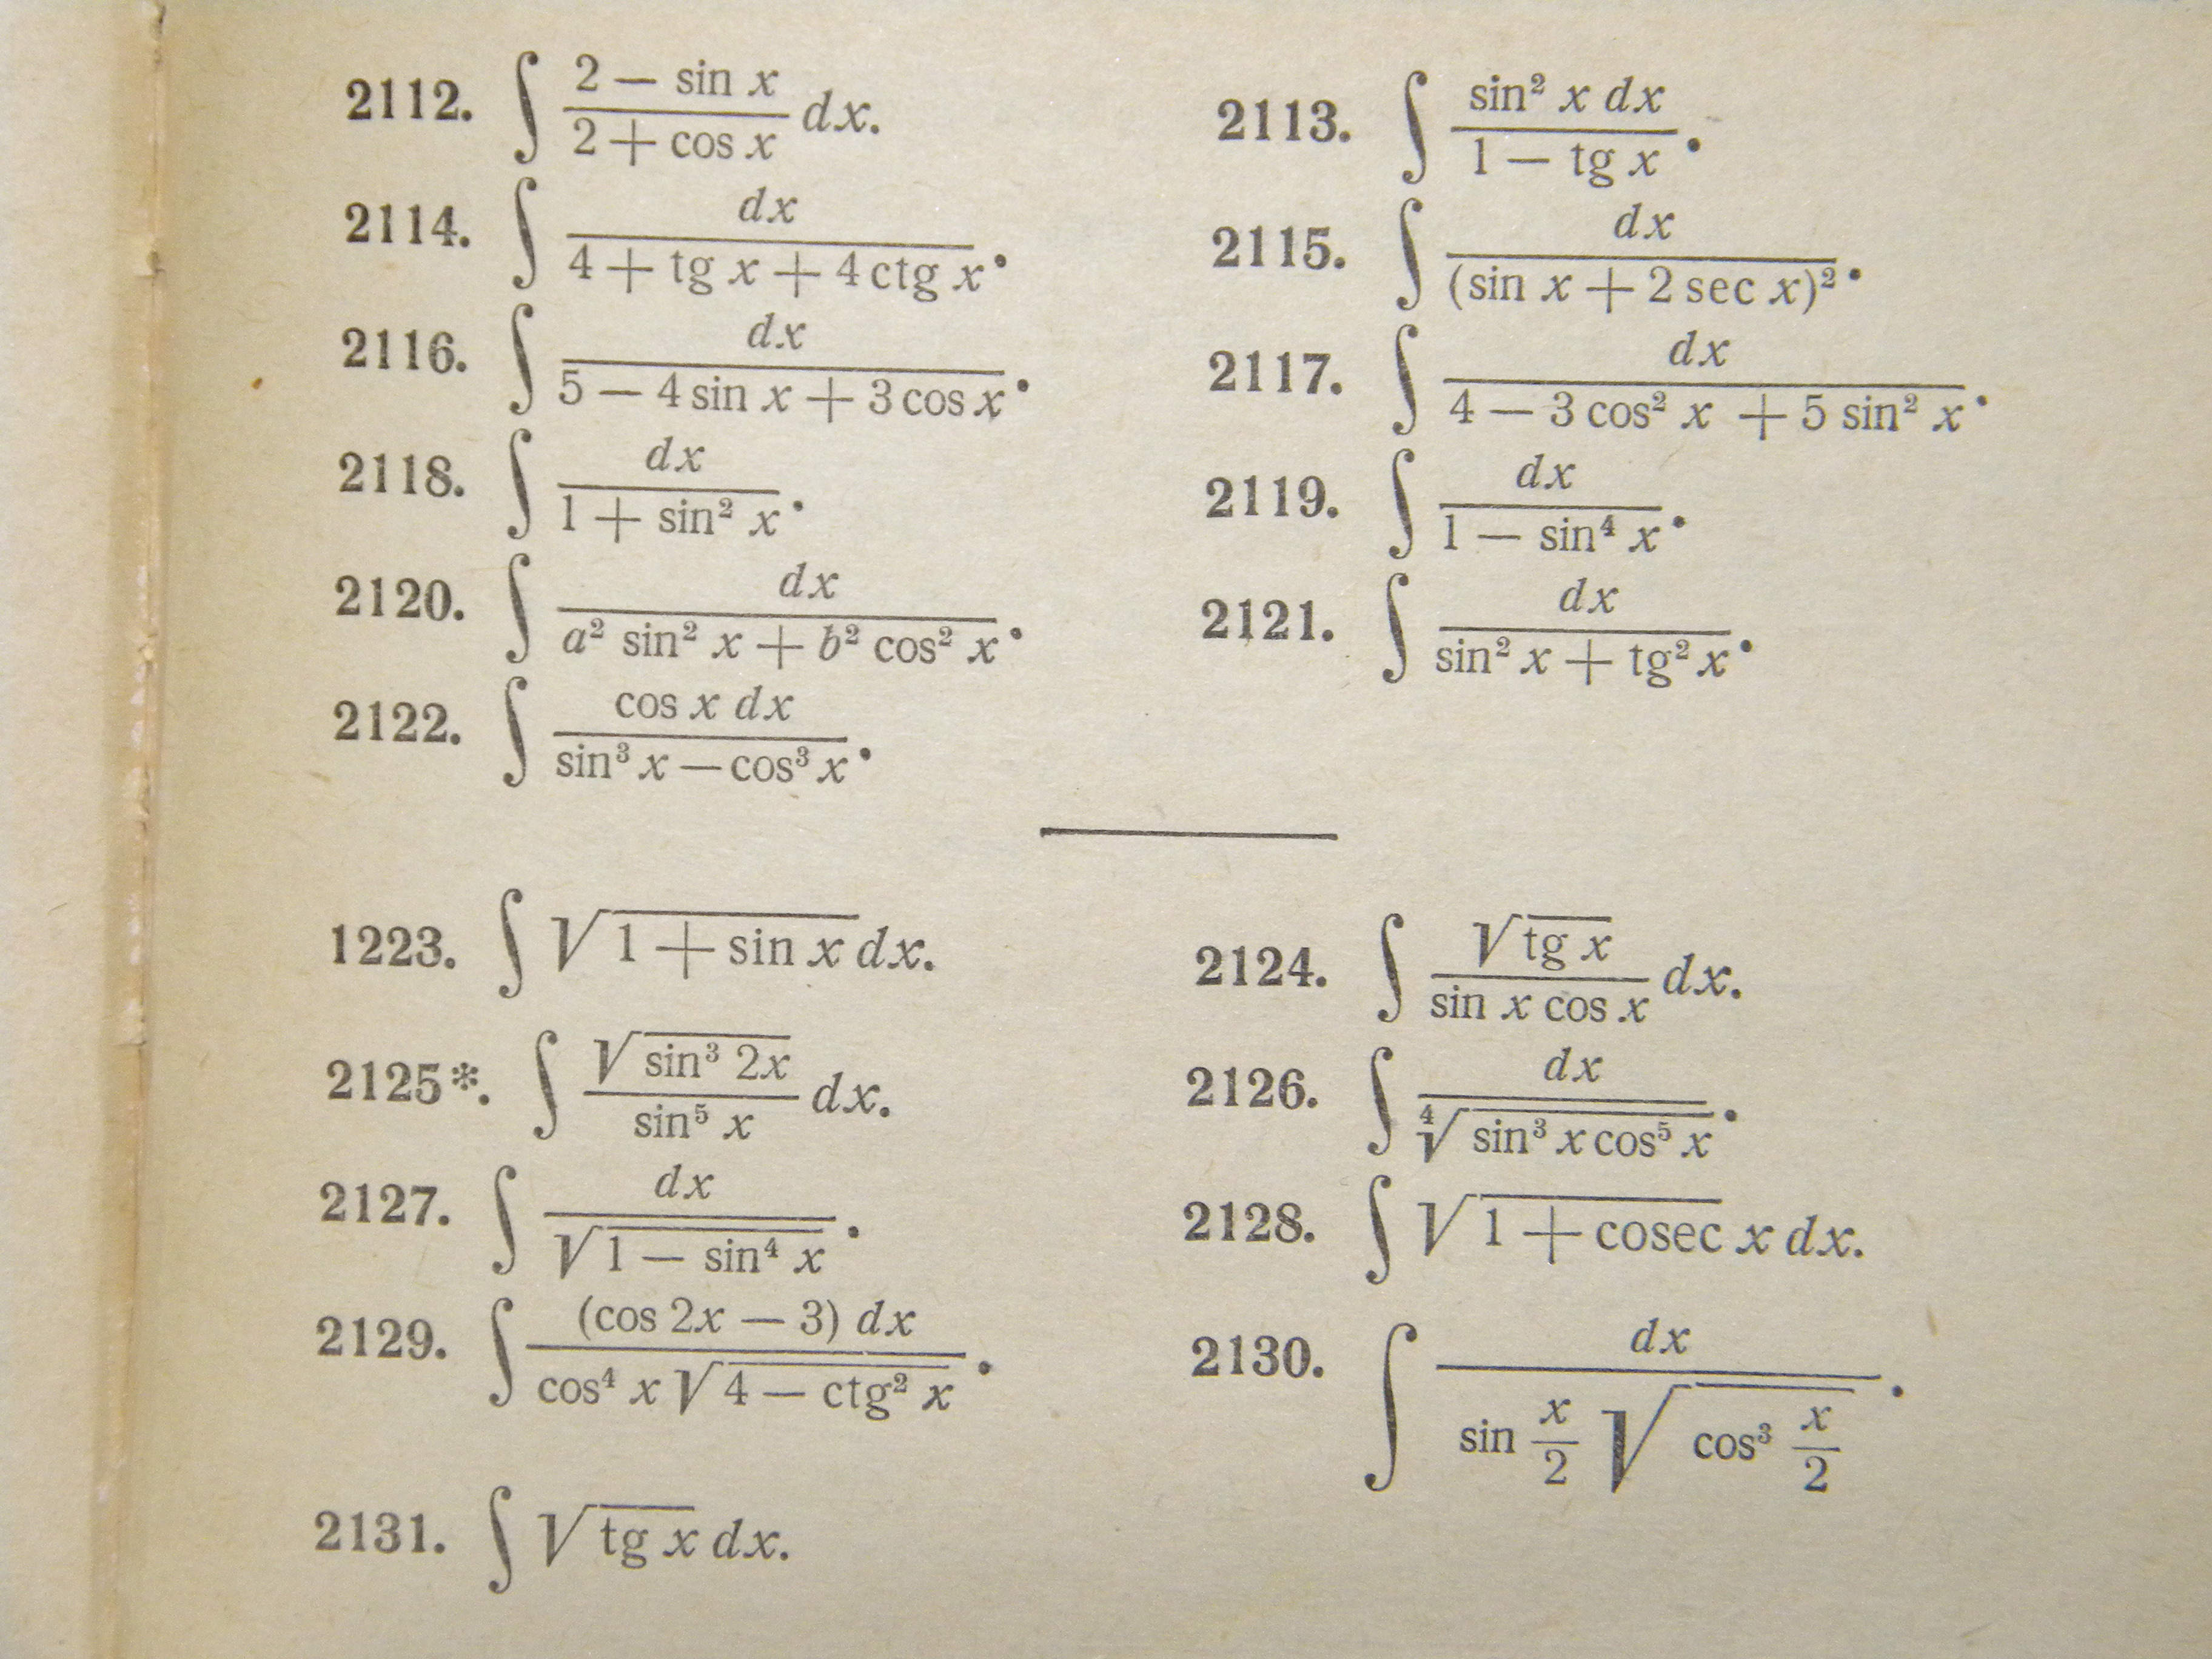 2112. ∫ (2 — sin x)/(2 + cos x) dx. 2113. ∫ (sin² x dx)/(1 — tg x).
2114. ∫ dx/(4 + tg x + 4 ctg x). 2115. ∫ dx/(sin x + 2 sec x)².
2116. ∫ dx/(5 — 4 sin x + 3 cos x). 2117. ∫ dx/(4 — 3 cos² x + 5 sin² x).
2118. ∫ dx/(1 + sin² x). 2119. ∫ dx/(1 — sin⁴ x).
2120. ∫ dx/(a² sin² x + b² cos² x). 2121. ∫ dx/(sin² x + tg² x).
2122. ∫ (cos x dx)/(sin³ x — cos³ x).
1223. ∫ √(1 + sin x) dx. 2124. ∫ √(tg x)/(sin x cos x) dx.
2125*. ∫ √(sin³ 2x)/(sin⁵ x) dx. 2126. ∫ dx/⁴√(sin³ x cos⁵ x).
2127. ∫ dx/√(1 — sin⁴ x). 2128. ∫ √(1 + cosec x) dx.
2129. ∫ ((cos 2x — 3) dx)/(cos⁴ x √(4 — ctg² x)). 2130. ∫ dx/(sin x/2 √(cos³ x/2)).
2131. ∫ √(tg x) dx.